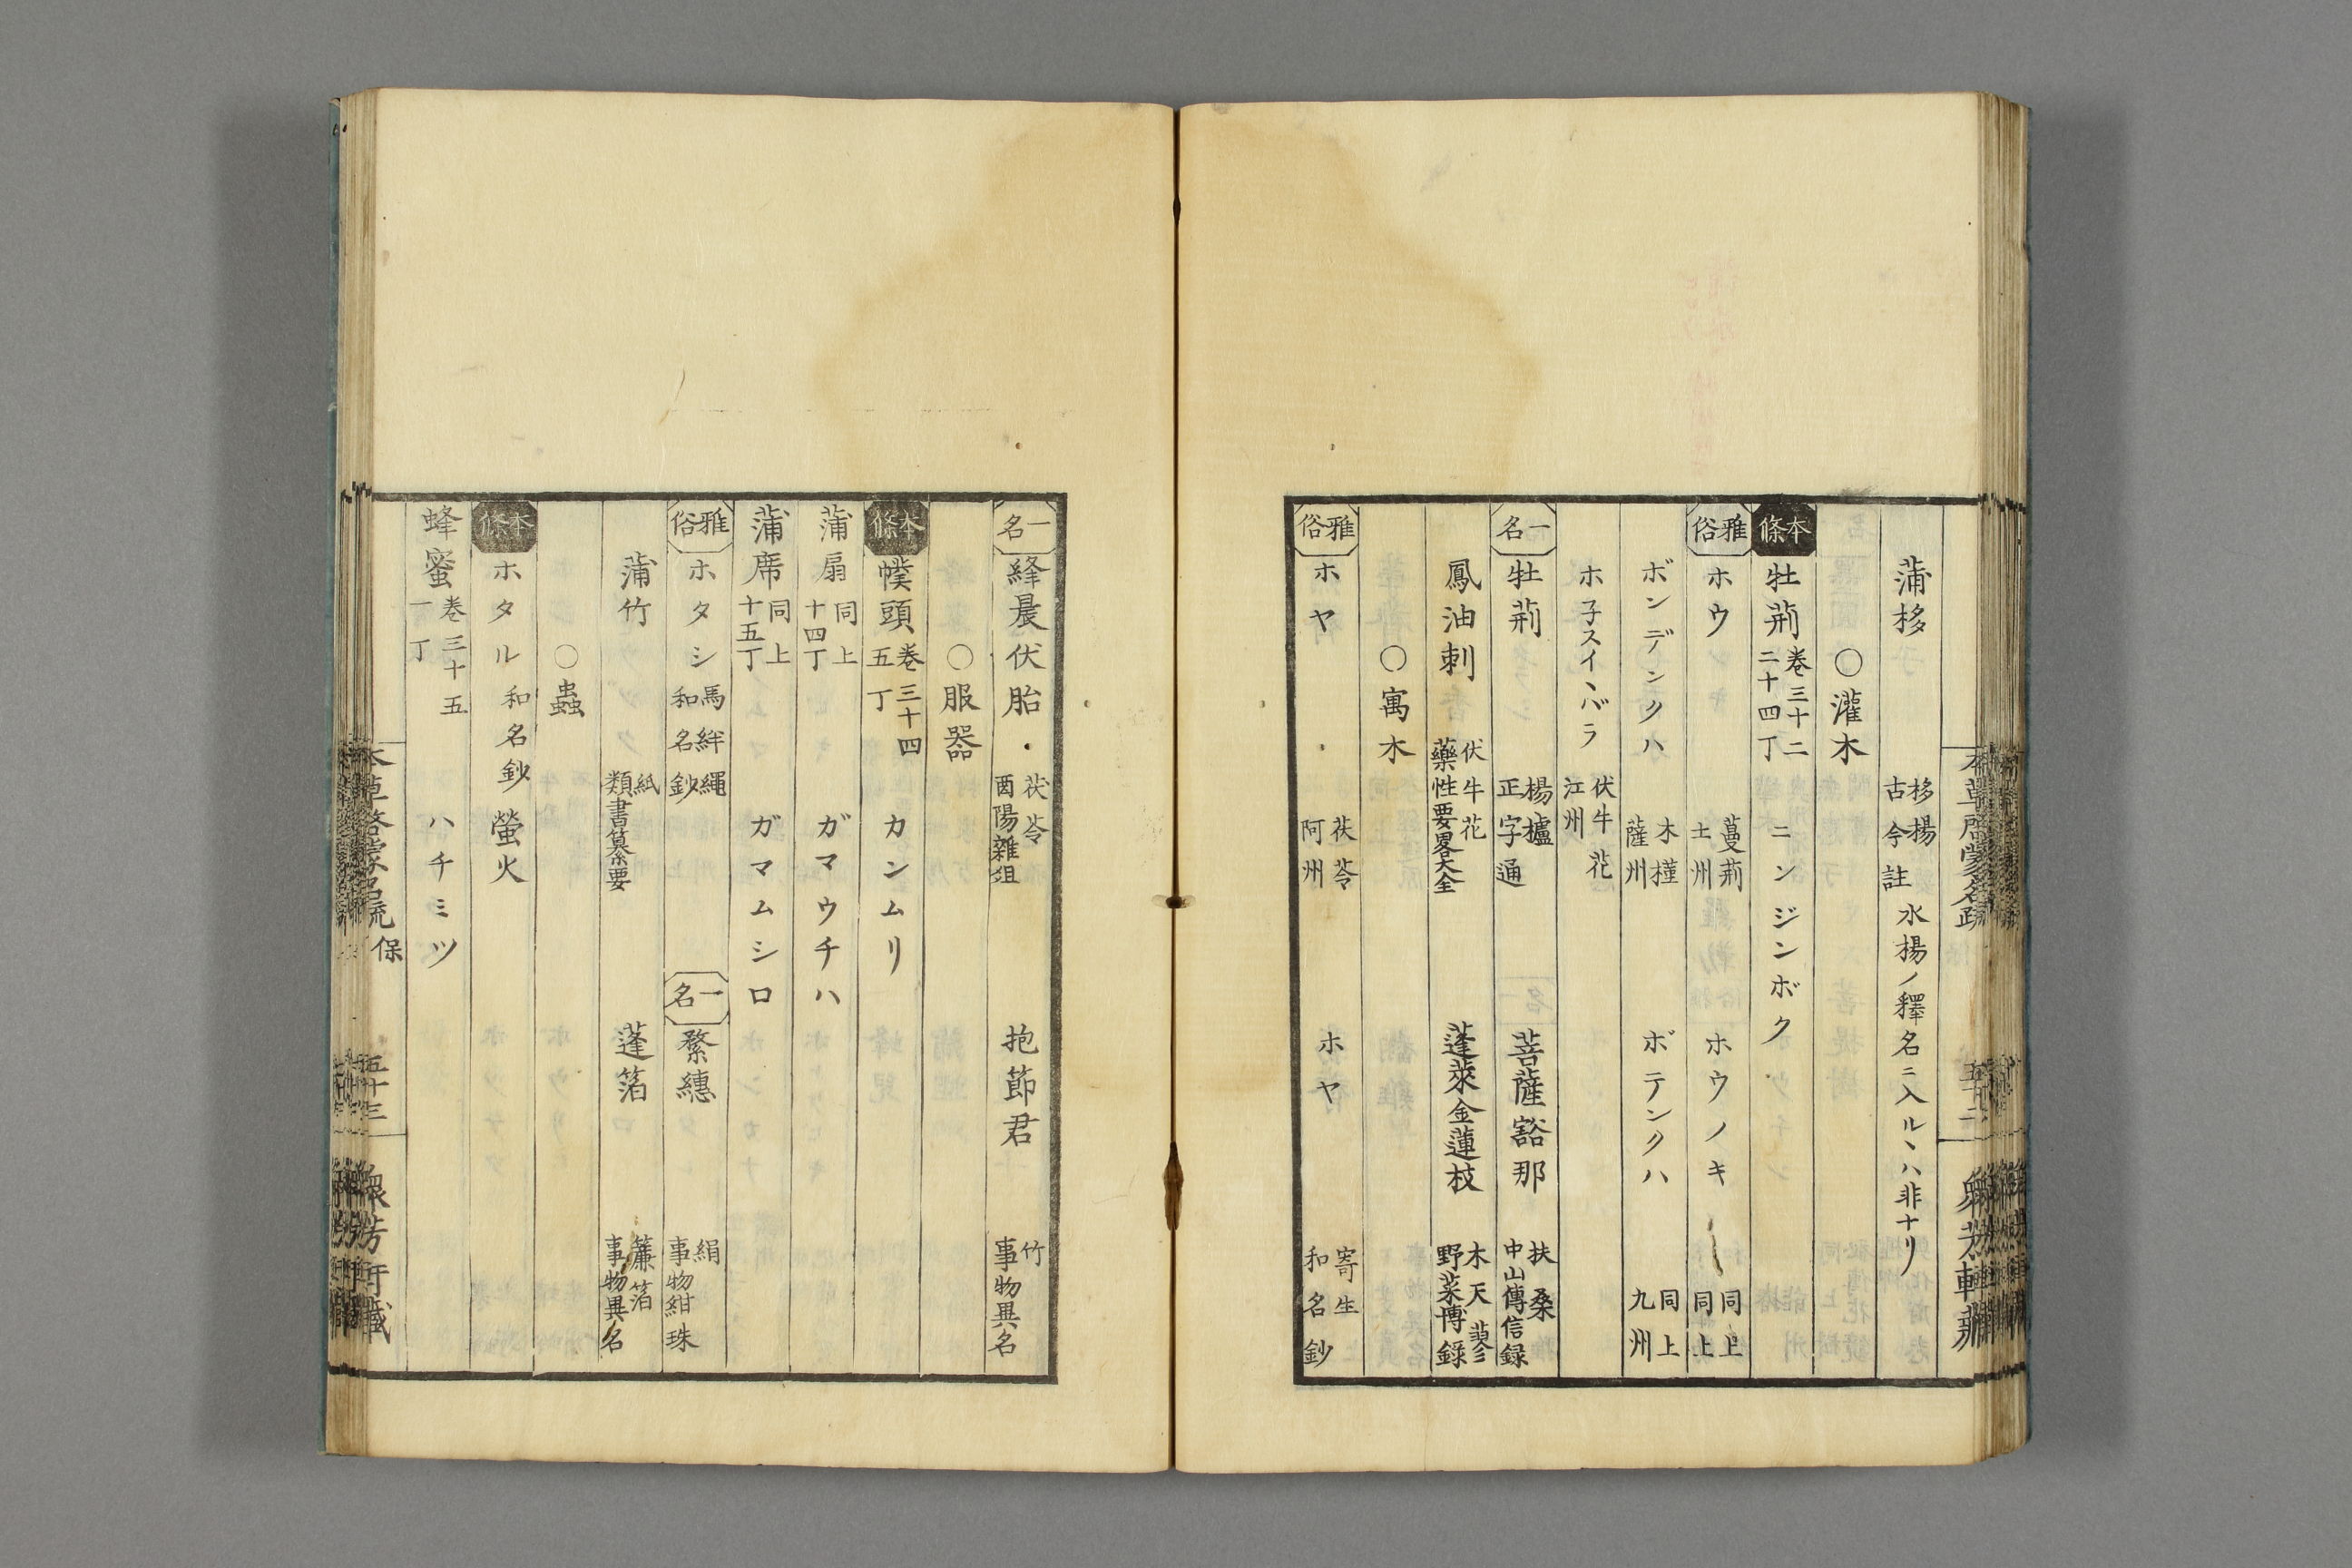 蒲栘 栘楊 古今註 水楊ノ釋名ニ入ルヽハ非ナリ
〇灌木
本條 牡荊 卷三十二 二十四丁 ニンジンボク
雅俗 ホウ 蔓荊 土州 ホウノキ 同上 同上
ボンデンクハ 木槿 薩州 ボテンクハ 同上 九州
ホ子スイヽバラ 伏牛花 江州
一名 牡荊 楊櫨 正字通 菩薩豁那 扶桑 中山傳信錄
鳳油刺 伏牛花 藥性要畧大全 蓬萊金蓮枝 木天蓼 野菜博錄
〇寓木
雅俗 ホヤ 茯苓 阿州 ホヤ 寄生 和名鈔
一名 絳晨伏胎 茯苓 酉陽雜俎 抱節君 竹 事物異名
〇服器
本條 幞頭 卷三十四 五丁 カンムリ
蒲扇 同上 十四丁 ガマウチハ
蒲席 同上 十五丁 ガマムシロ
雅俗 ホタシ 馬絆繩 和名鈔 一名 鍪繐 絹 事物紺珠
蒲竹 紙 類書纂要 蓬箔 簾箔 事物異名
〇蟲
本條 ホタル 和名鈔 螢火
蜂蜜 卷三十五 一丁 ハチミツ
保 五十三